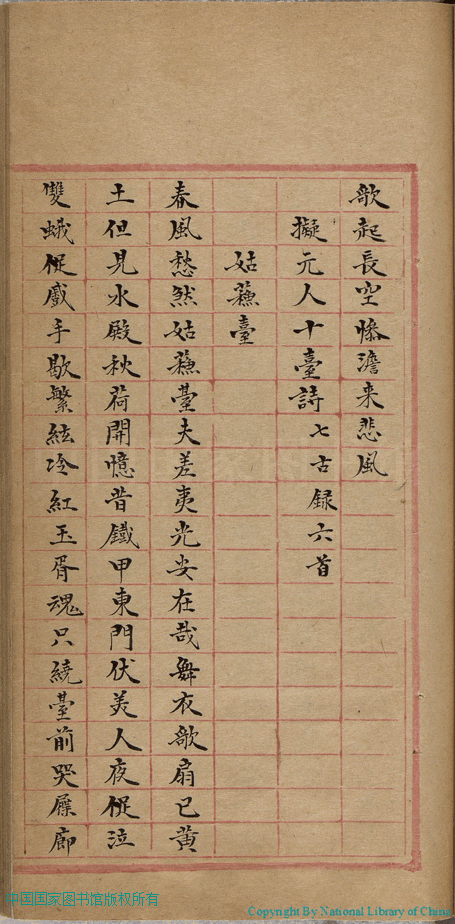 歌起長空慘澹来悲風
擬元人十臺詩 七古録六首
姑蘓臺
春風愁煞姑蘓臺夫差夷光安在哉舞衣歌扇已黄
土但見水殿秋荷開憶昔鐵甲東門伏美人夜促泣
雙蛾促戲手歇繁絃冷紅玉胥魂只繞臺前哭屧廊
中国国家图书馆版权所有
Copyright By National Library of China